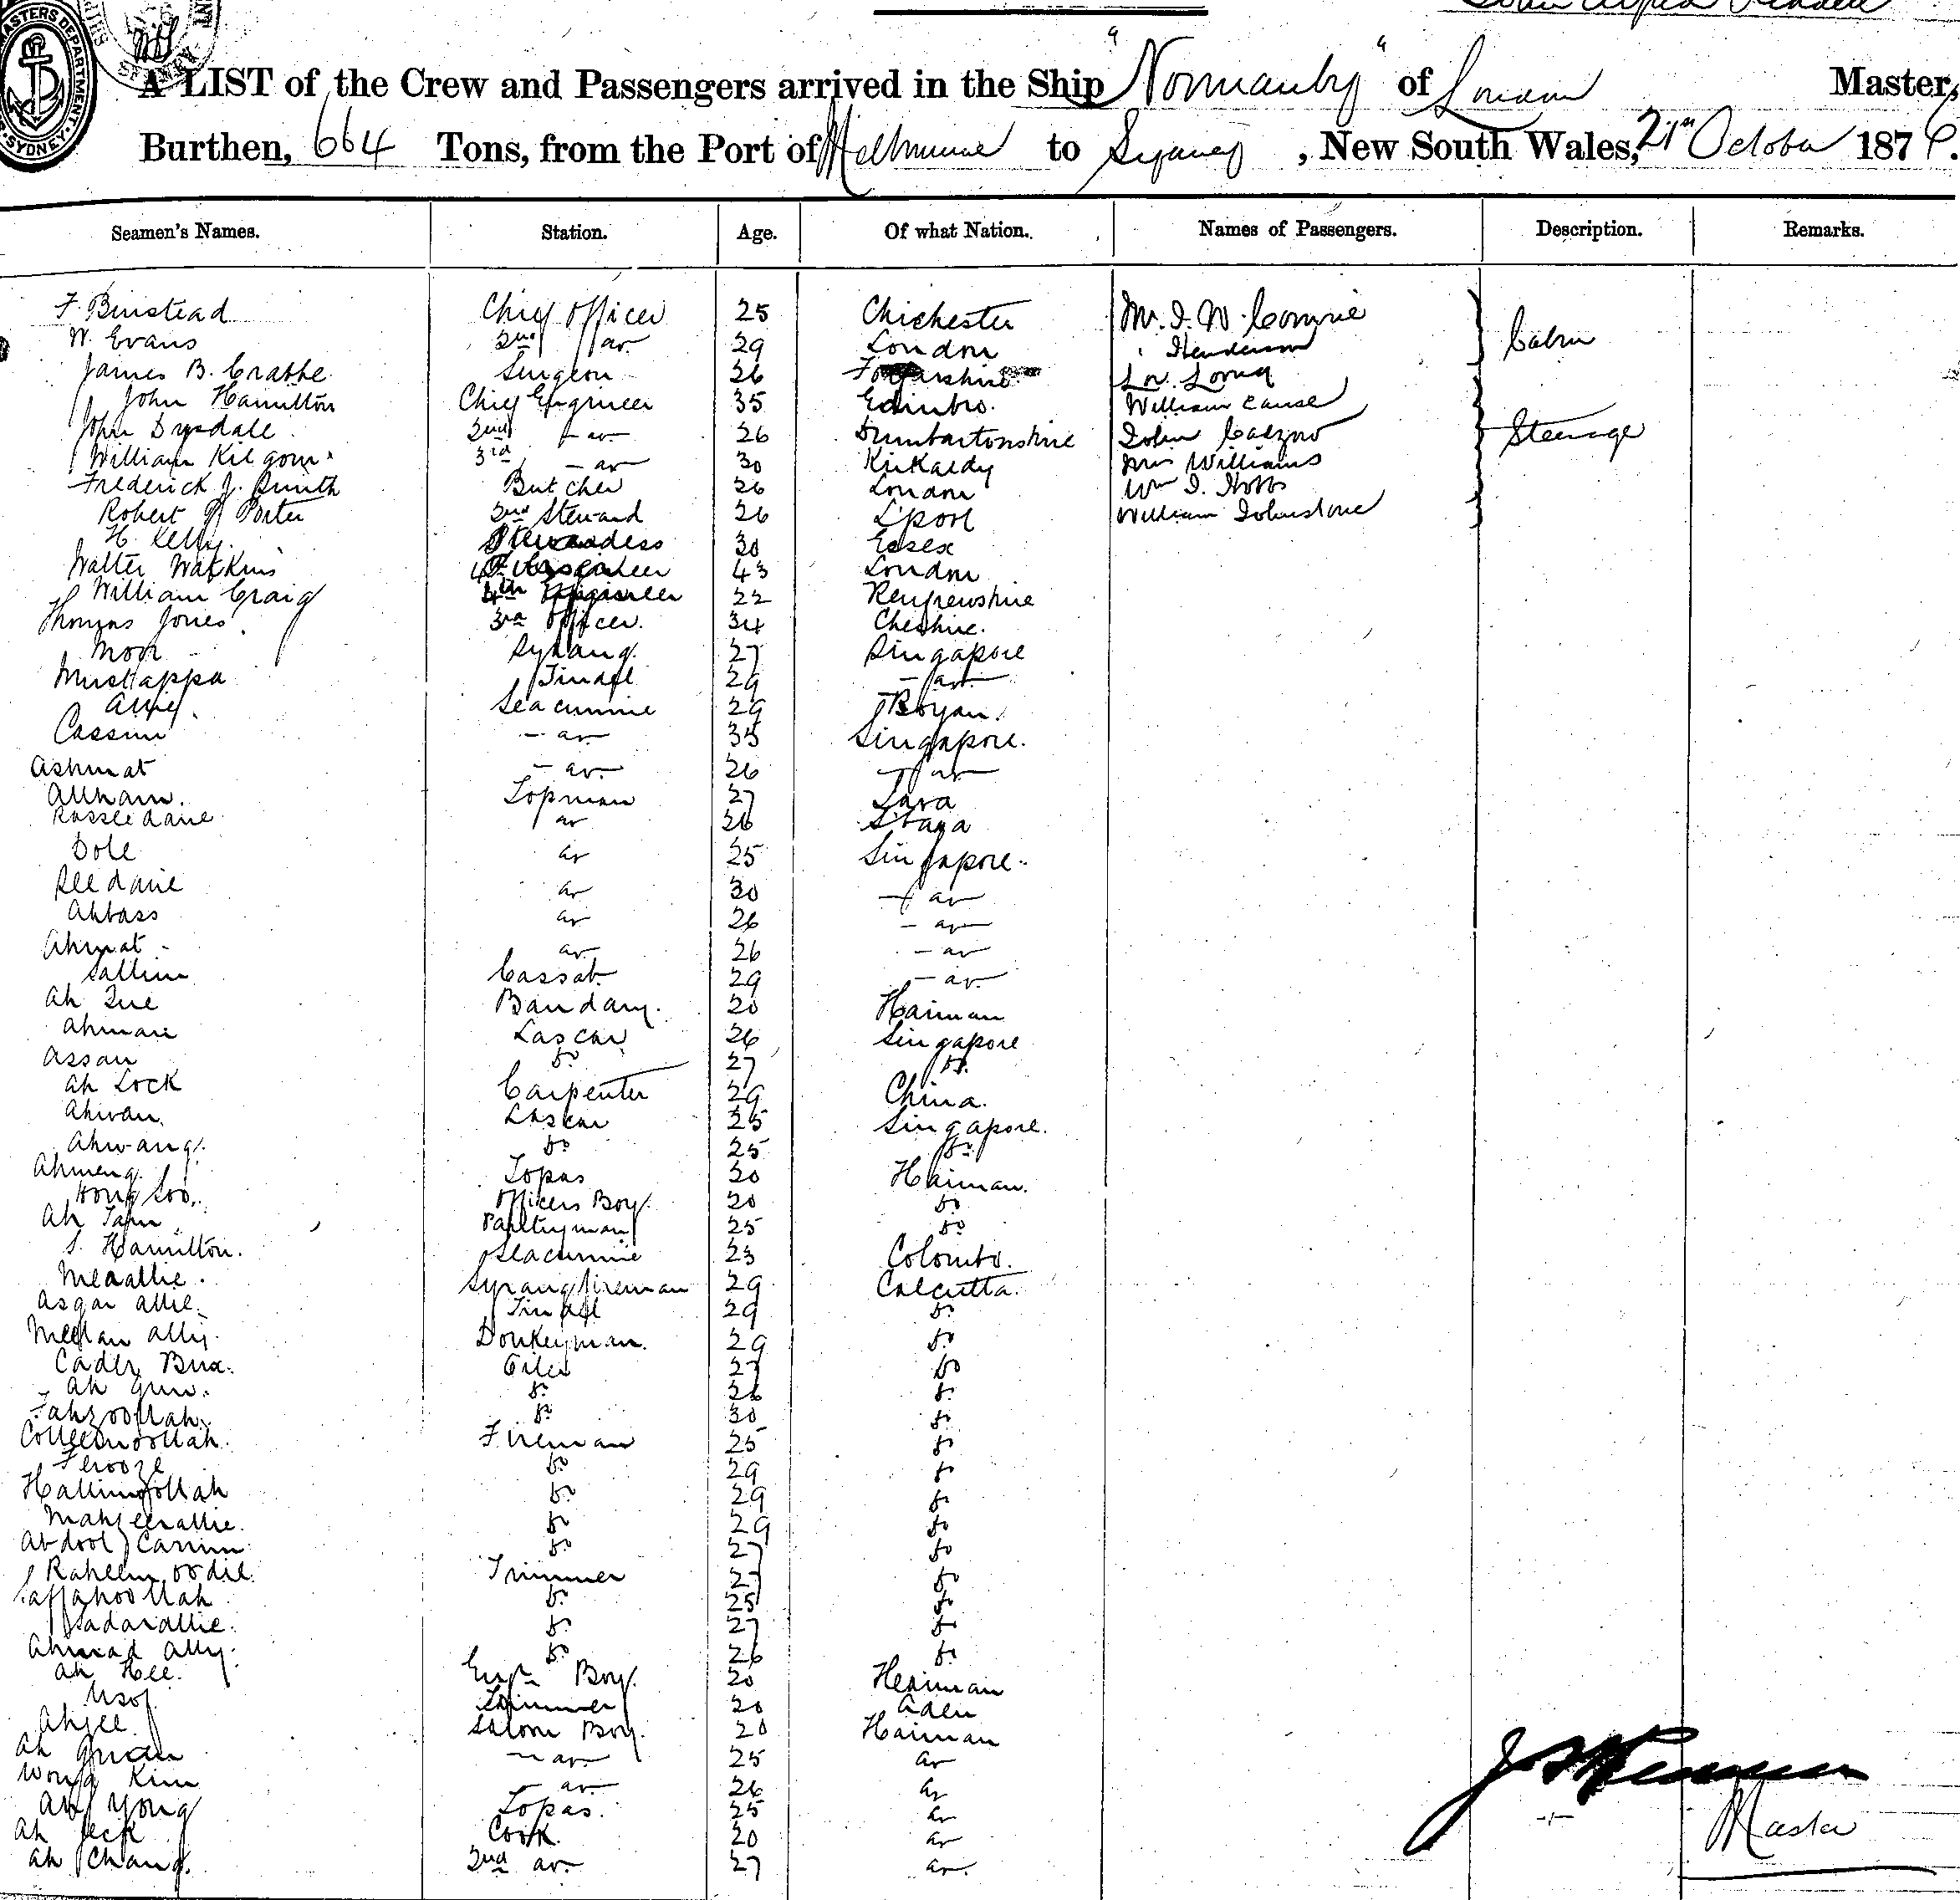 A LIST of the Crew and Passengers arrived in the Ship "Normanby" of London Master,
Burthen, 664 Tons, from the Port of Melbourne to Sydney, New South Wales, 21st October 1876.
Seamen's Names. Station. Age. Of what Nation. Names of Passengers. Description. Remarks.
F. Binstead Chief Officer 25 Chichester Mr. J. W. Comrie
W. Evans 2nd do 29 London Henderson Cabin
James B. Crabbe Surgeon 26 Forfarshire Dr. Loring
John Hamilton Chief Engineer 35 Edinbro. William Cause
John Drysdale 2nd do 26 Dumbartonshire John Steerage
William Kilgour 3rd do 30 Kirkaldy Mrs Williams
Frederick J. Smith Butcher 26 London Wm J. Hobbs
Robert Porter 2nd Steward 26 L'pool William Johnstone
H. Kelly Stewardess 30 Essex
Walter Watkins 43 London
William Craig 4th Engineer 22 Renfrewshire
Thomas Jones 3rd Officer. 34 Cheshire.
Moor Syrang 27 Singapore
Mustappa Tindal 29 do
Ally Seacunnie 29 Boyan.
Cassim do 35 Singapore.
Ashmat do 26 do
Allham. Topman 27 Java
do 26
Dole do 25 Singapore.
do 30 do
Abbass do 26 do
Ahmat do 26 do
Sallim Cassab 29 do
Ah Que Bandary. 20 Hainan
Ahman Lascar 26 Singapore
Assan do 27 do
Ah Lock Carpenter 29 China.
Ahwan. Lascar 25 Singapore.
Ahwang. do 25 do
Ahmeng. Topas 20 Hainan.
Hong Soo. Officers Boy 20 do
Ah Tam Pantryman 25 do
S. Hamilton. Seacunnie 23 Colombo.
Meaallie. Syrang fireman 29 Calcutta.
Asgar Allie. Tindal 29 do
Meelan Ally. Donkeyman. 29 do
Cader Bux. Oiler 27 do
Ah do 26 do
Fahzoollah. do 30 do
Colleemoollah. Fireman 25 do
Ferooze do 29 do
Hallimoollah do 29 do
Mahzerallie. do 29 do
Abdool Carrim do 27 do
Raheemoodie. Trimmer 27 do
Saffahoollah do 25 do
Sadarallie. do 27 do
Ahmad Ally. do 26 do
Ah Hee. Engrs Boy. 20 Hainan
Usof Trimmer 20 Aden
Ahjee Saloon Boy. 20 Hainan
Ah do 25 do
Wong Kim do 26 do
Ah Yong Topas. 25 do
Ah Cook. 20 do
Ah Chang. 2nd do 27 do
Master